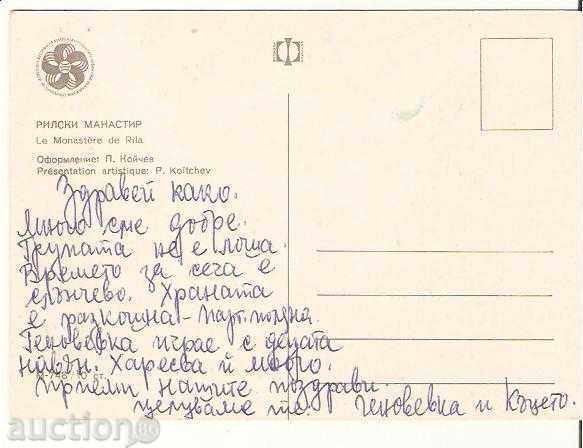 РИЛСКИ МАНАСТИР
Le Monastère de Rila
Оформление: П. Койчев
Présentation artistique: P. Koïtchev
Здравей како.
Много сме добре.
Групата не е лоша.
Времето за сега е
слънчево. Храната
е разкошна - парт.
Геновевка играе с децата
навън. Харесва ѝ много.
Приеми нашите поздрави.
целуваме те. Геновевка и
auction